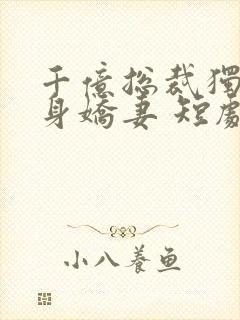 千億总裁獨
身嬌妻 短處
小八養鱼